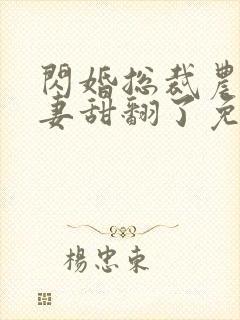 閃婚總裁農
妻甜翻了免
楊忠東